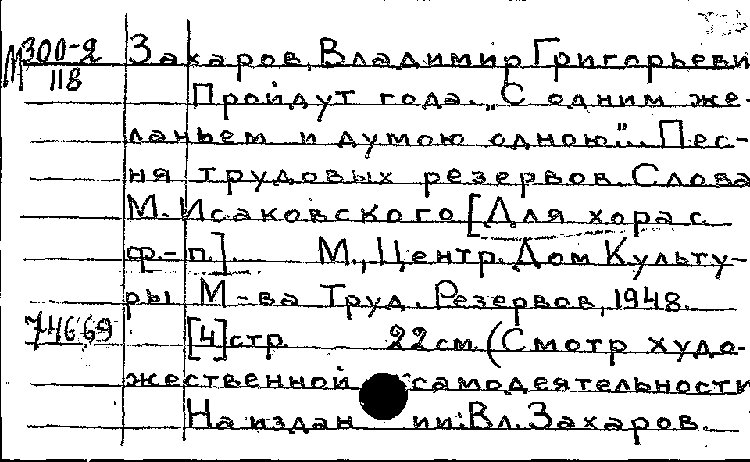 М300-2 Захаров, Владимир Григорьеви
118
Пройдут года. „С одним же-
ланьем и думою одною”... Пес-
ня трудовых резервов. Слова
М. Исаковского [Для хора с
ф.-п.]. М., Центр. Дом Культу-
ры М-ва Труд. Резервов, 1948.
74669 [4] стр. 22 см. (Смотр худо-
жественной самодеятельности
На издан ии: Вл. Захаров.